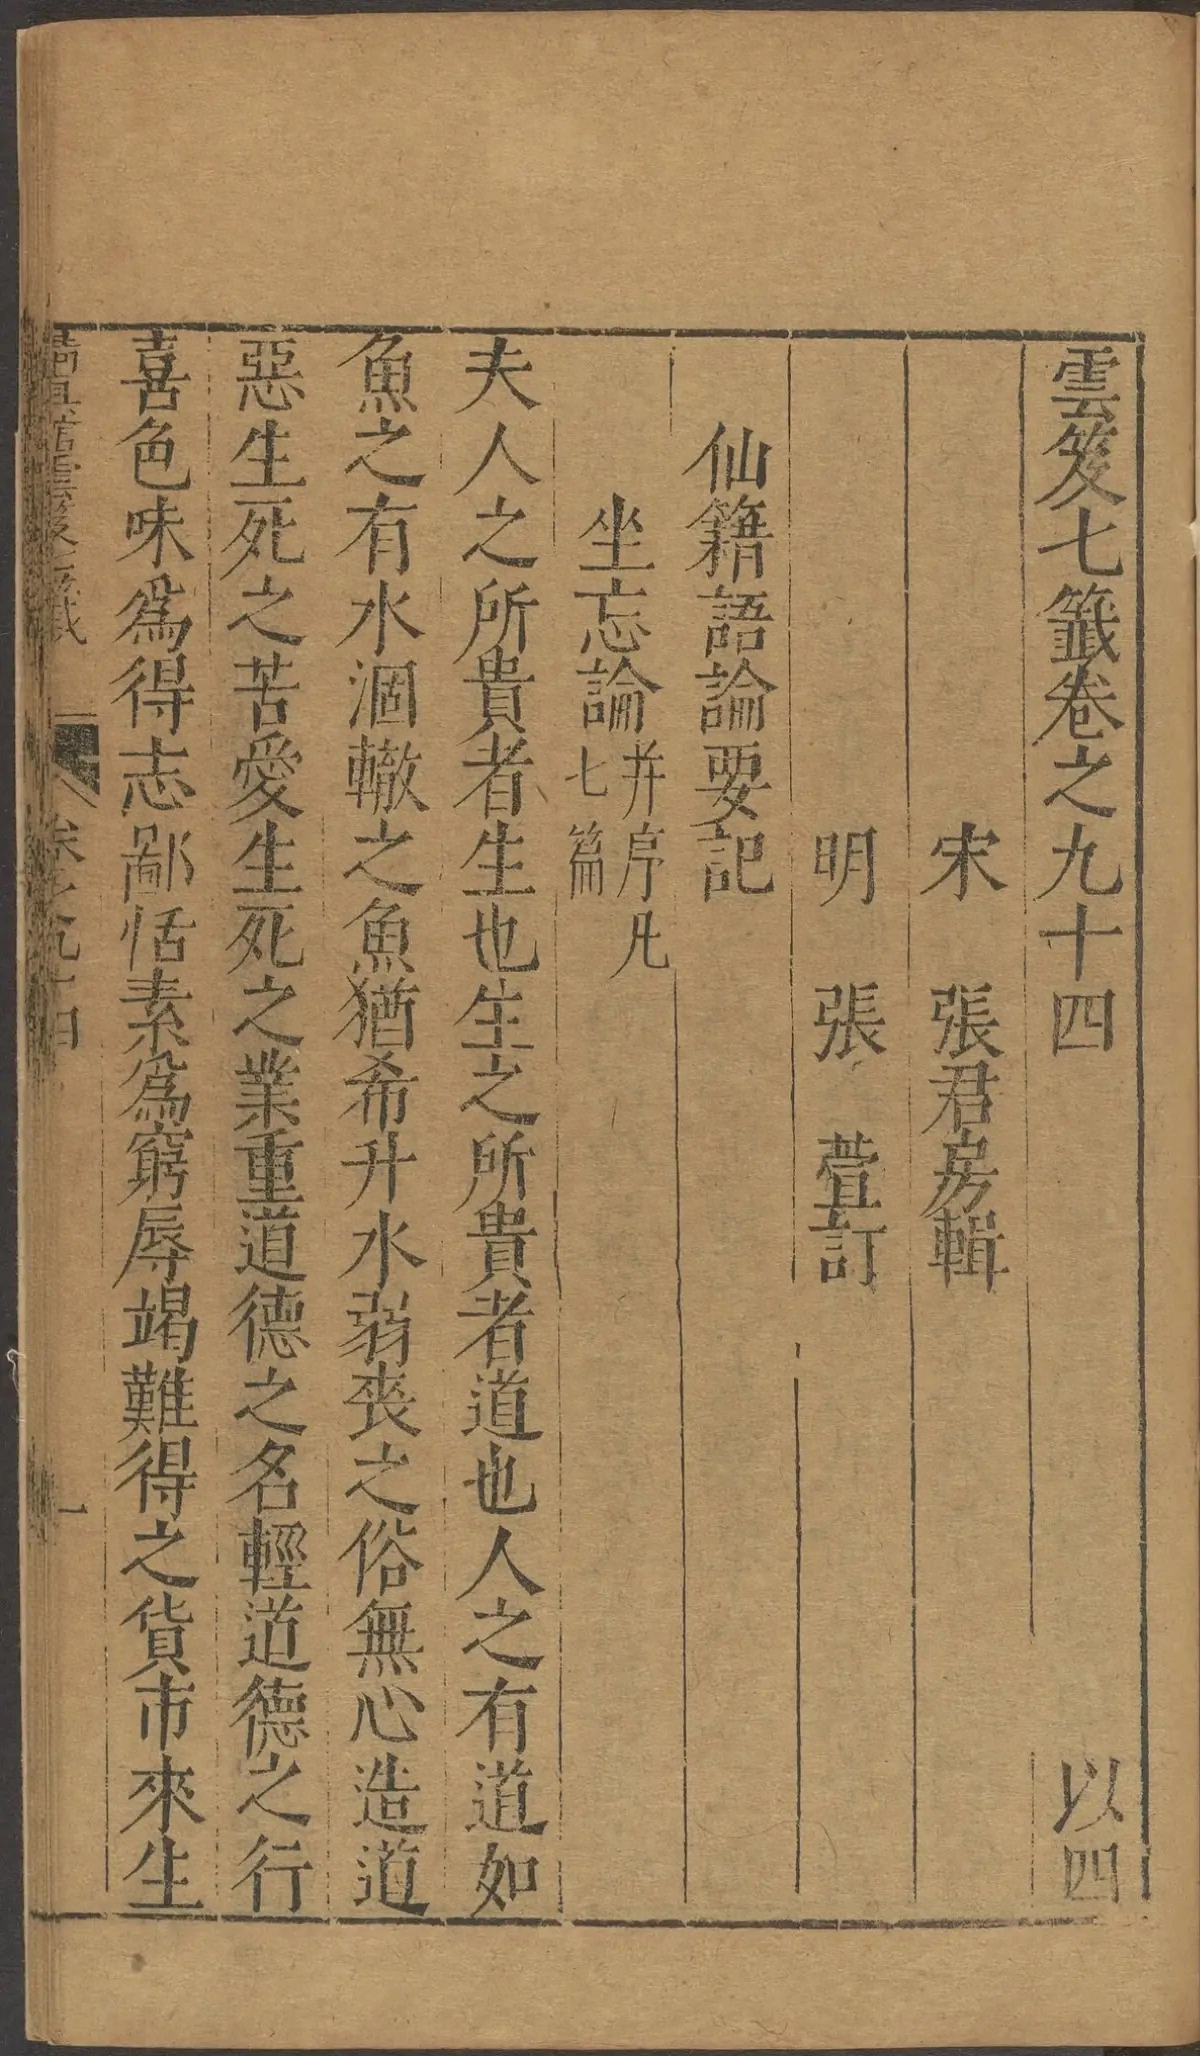 雲笈七籤卷之九十四 以四
宋 張君房輯
明 張 萱訂
仙籍語論要記
坐忘論 并序凡
七篇
夫人之所貴者生也生之所貴者道也人之有道如
魚之有水涸轍之魚猶希升水弱喪之俗無心造道
惡生死之苦愛生死之業重道德之名輕道德之行
喜色味爲得志鄙恬素爲窮辱竭難得之貨市來生
清真館雲笈七籤 卷之九十四 一